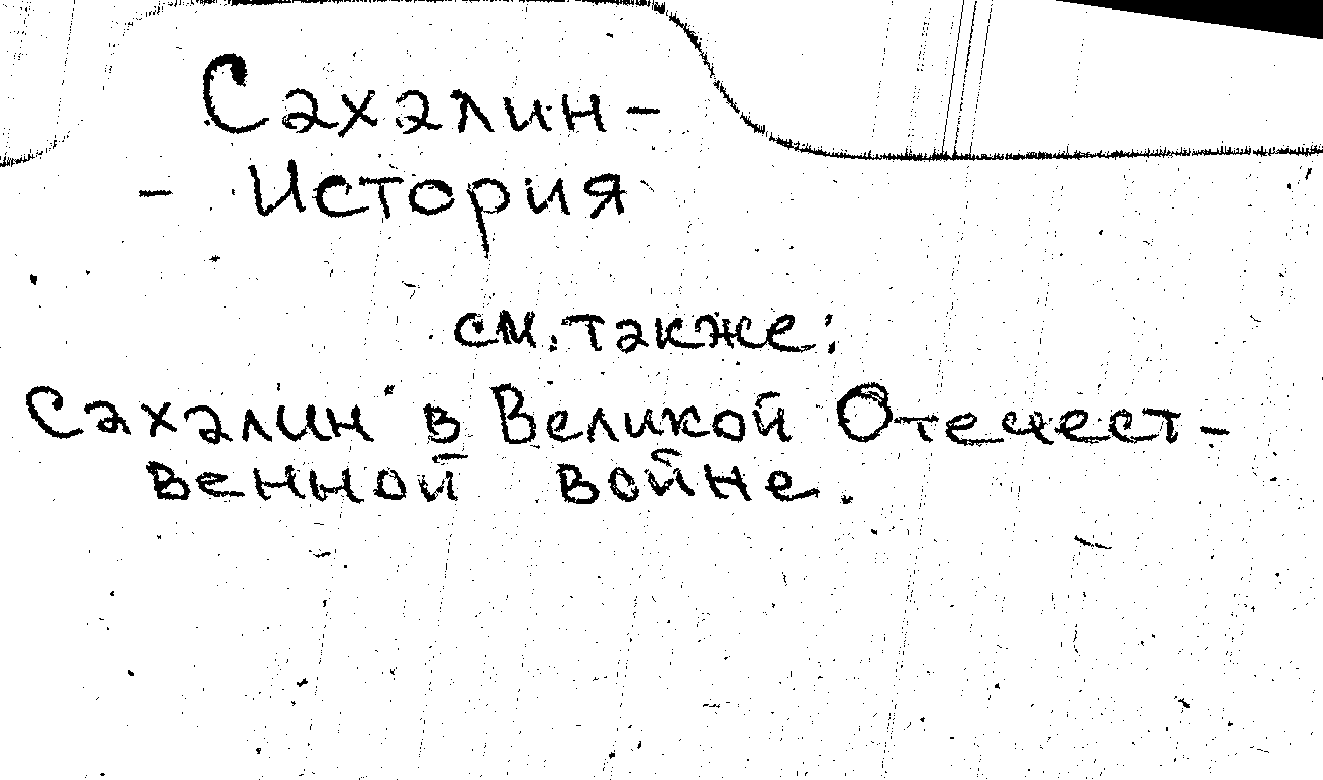 Сахалин-
- История
см. также:
Сахалин в Великой Отечест-
венной войне.